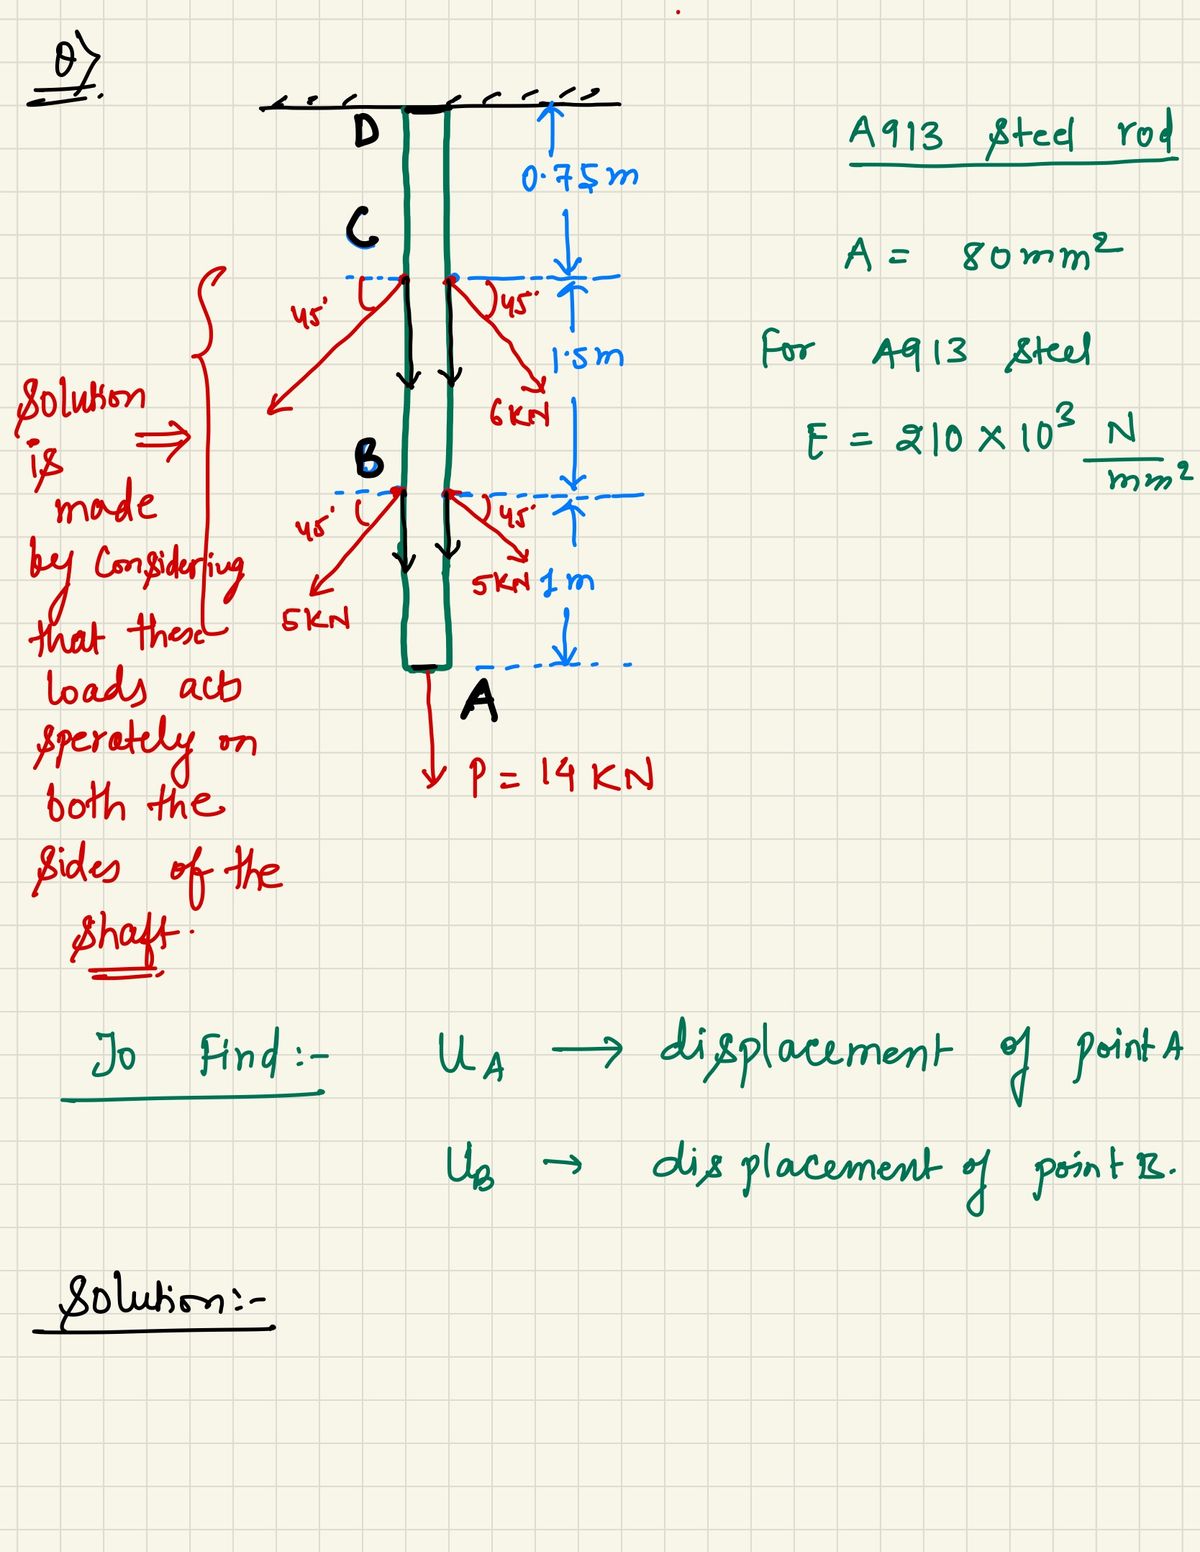 Q>
D
0.75m
A913 Steel rod
C
A = 80mm²
45°
45°
1.5m
For A913 Steel
6KN
E = 210 × 10³ N/mm²
B
45°
45°
5KN
5KN
1m
Solution
is
made
by Considering
that these
loads acts
sperately on
both the
sides of the
shaft.
A
P = 14 KN
To Find:-
U_A → displacement of point A
U_B → displacement of point B.
Solution:-